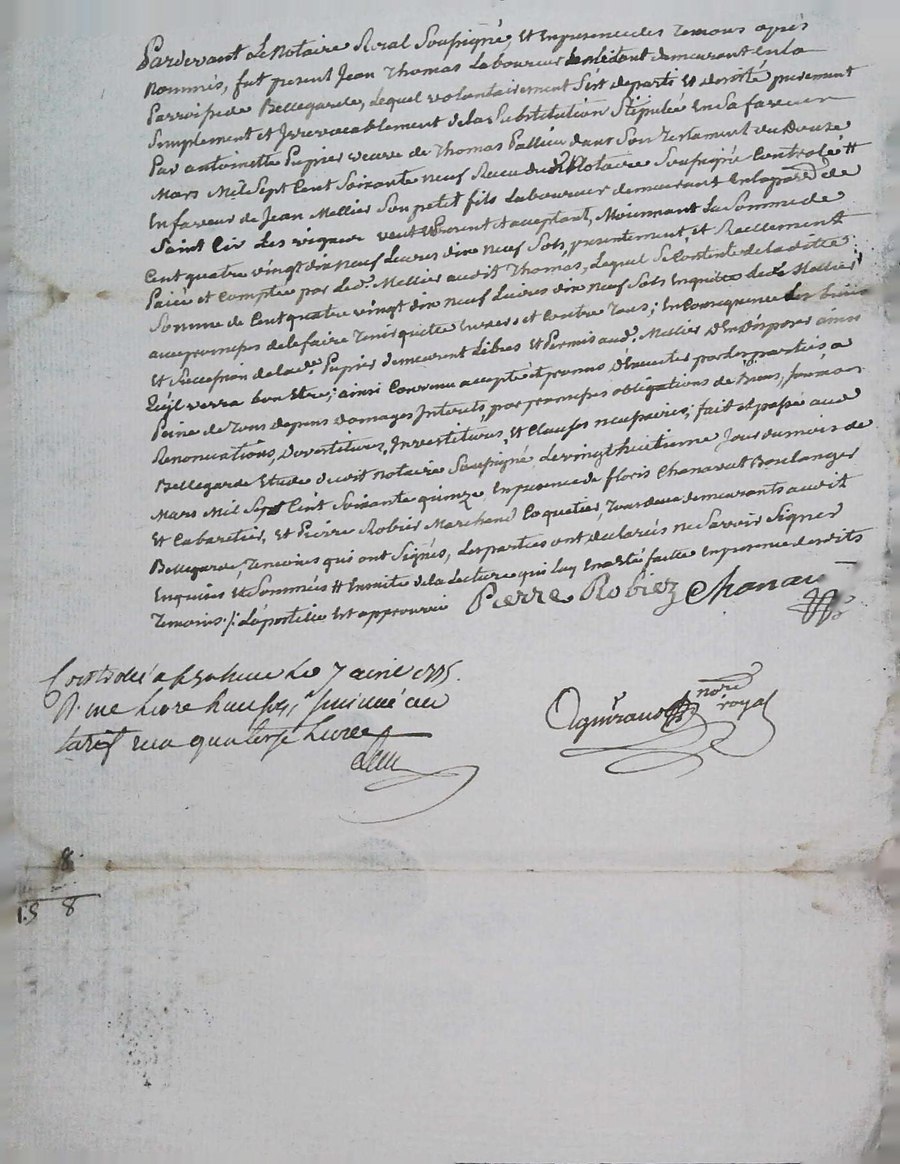 Pardevant Le Notaire Royal Soussigné, et En presence des Temoins après
Nommés, fut present Jean Thomas Laboureur demeurant en la
Parroisse de Bellegarde, Lequel volontairement S'est departi et desisté purement
Simplement et Irrevocablement de la Substitution Stipulée En Sa faveur
Par antoinette Pupier veuve de Thomas Pallieu dans Son Testament du Douze
Mars Mil Sept Cent Soixante neuf Receu du Notaire Soussigné Controlé #
En faveur de Jean Mellier Son petit fils Laboureur demeurant En la par de
Saint Cir Les vignes present et acceptant, Moiennant La Somme de
Cent quatre vingt dix neuf Livres dix neuf Sols, presentement et Reellement
Paiée et Comptée par Led. Mellier audit Thomas, Lequel Se Contente de la ditte
Somme de Cent quatre vingt dix neuf Livres dix neuf Sols En quitte led. Mellier
avec promesse de le faire Tenir quitte Envers et Contre Tous; En Consequence Les biens
et Succession de lade Pupier demeurent Libres Et Permis aud. Mellier D'En Disposer ainsi
qu'il verra bon Etre; ainsi Convenu accepté et promis D'Executer par Les parties a
Peine de Tous depens Domages Interets, par promesses obligations de Biens,
Renonciations, Devestitures, Investitures, et Clauses necessaires; fait et passé aud
Bellegarde Etude dudit notaire Soussigné Le vingt huitieme Jour du mois de
Mars Mil Sept Cent Soixante quinze En presence de floris Chanavat Boulanger
et Cabaretier, et Pierre Robier Marchand Coquetier, Tous deux demeurants audit
Bellegarde, Temoins qui ont Signés, Les parties ont declarés ne Savoir Signer
Enquises et Sommées # Ensuite de la Lecture qui Luy En a Eté faitte En presence desdits
Temoins ./. L'apostille Est approuvée Pierre Robiez Chanavat
Controlé a Le 7 avril 1775.
R. une Livre
tarif quatorze Livres
nore
royal
8
1.5 8